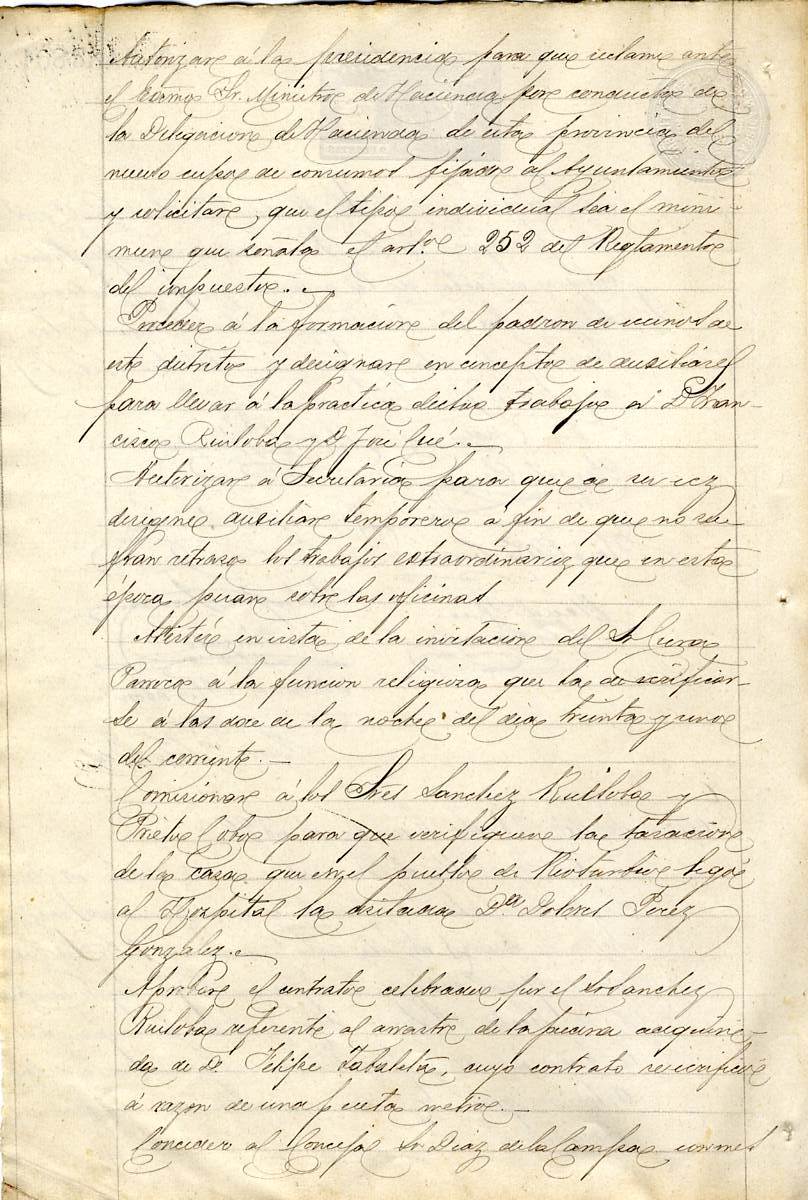 Autorizar á la presidencia para que reclame ante
el Excmo Sr. Ministro de Hacienda por conducto de
la Delegacion de Hacienda de esta provincia del
nuevo cupo de consumos fijado al Ayuntamiento
y solicitar, que el tipo individual sea el míni-
mun que señala el artº 252 del Reglamento
del impuesto.
Proceder á la formacion del padron de vecinos de
este distrito y designar en concepto de auxiliares
para llevar á la practica dichos trabajos a D. Fran-
cisco Ruiloba y D. José Cué.
Autorizar á Secretaria para que a su vez
designe auxiliar temporero á fin de que no su-
fran retraso los trabajos extraordinarios que en esta
época pesan sobre las oficinas
Asistir en vista de la invitacion del Sr Cura
Parroco á la funcion religiosa que ha de verificar-
se á las doce de la noche del dia treinta y uno
del corriente.
Comisionar á los Sres Sanchez Ruiloba y
Prieto Cobo para que verifiquen la tasacion
de la casa que en el pueblo de Rioturbio legó
al Hospital la citada Dª Dolores Perez
Gonzalez.
Aprobar el contrato celebrado por el Sr Sanchez
Ruiloba referente al arrastre de la piedra adquiri-
da de D. Felipe Zabaleta, cuyo contrato se verificó
á razon de una peseta metro.
Conceder al Concejal Sr Diaz de la Campa un mes